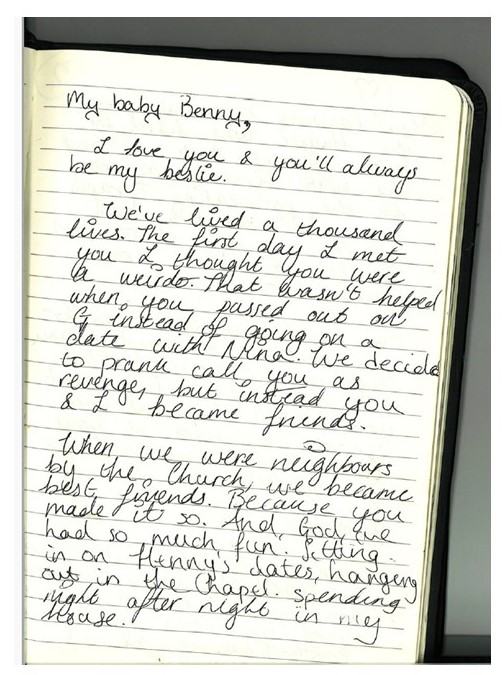 My baby Benny,
I love you & you'll always
be my bestie.
We've lived a thousand
lives. The first day I met
you I thought you were
a weirdo. That wasn't helped
when you passed out on
G instead of going on a
date with Nina. We decided
to prank call you as
revenge, but instead you
& I became friends.
When we were neighbours
by the Church, we became
best friends. Because you
made it so. And, God, we
had so much fun. Sitting
in on Henny's dates, hanging
out in the Chapel. spending
night after night in my
house.